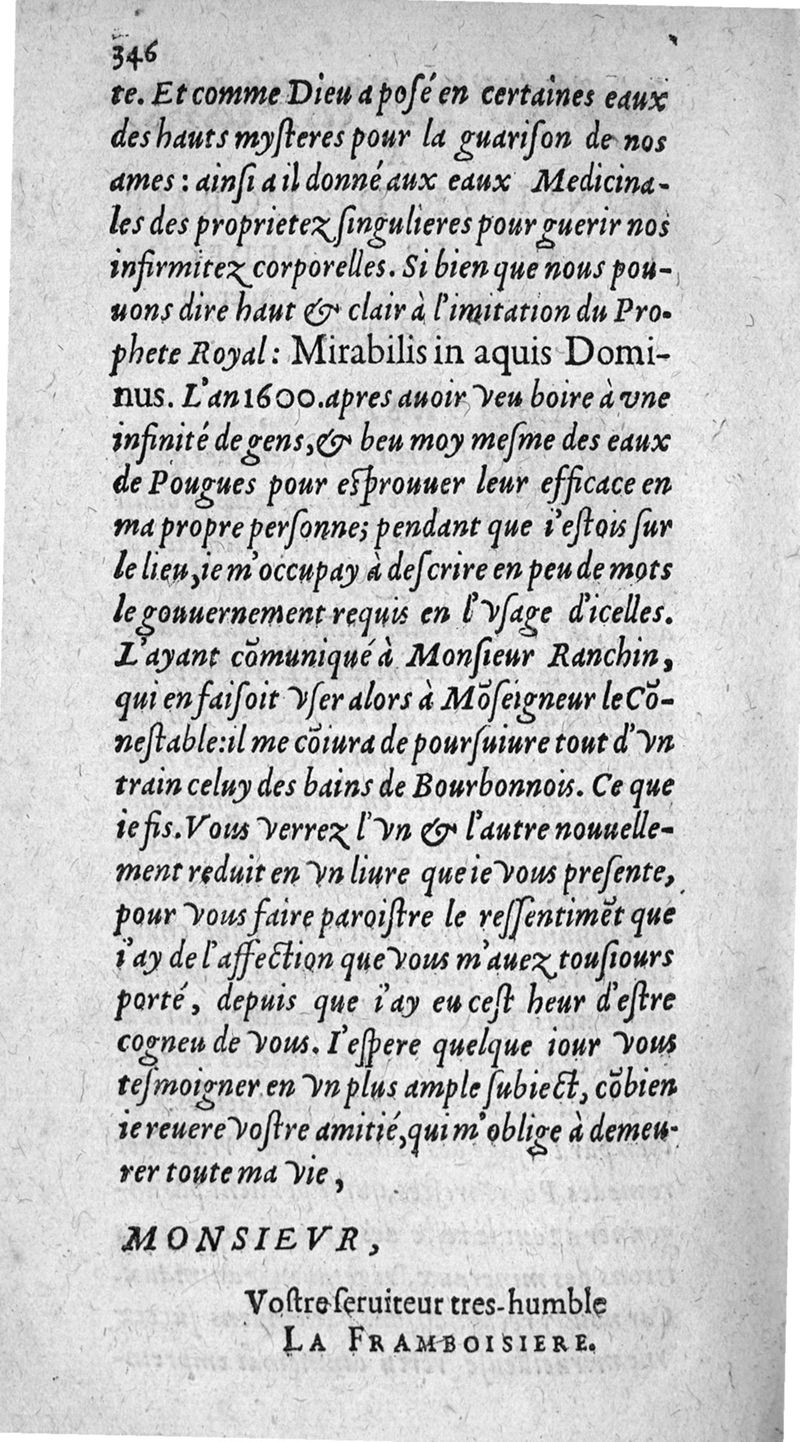 346
te. Et comme Dieu a poſé en certaines eaux
des hauts myſteres pour la guariſon de nos
ames : ainſi a il donné aux eaux Medicina-
les des proprietez ſingulieres pour guerir nos
infirmitez corporelles. Si bien que nous pou-
uons dire haut & clair à l'imitation du Pro-
phete Royal : Mirabilis in aquis Domi-
nus. L'an 1600. apres auoir veu boire à vne
infinité de gens, & beu moy meſme des eaux
de Pougues pour eſprouuer leur efficace en
ma propre perſonne; pendant que i'eſtois ſur
le lieu, ie m'occupay à deſcrire en peu de mots
le gouuernement requis en l'vſage d'icelles.
L'ayant cõmuniqué à Monſieur Ranchin,
qui en faiſoit vſer alors à Mõſeigneur le Cõ-
neſtable: il me cõiura de pourſuiure tout d'vn
train celuy des bains de Bourbonnois. Ce que
ie fis. Vous verrez l'vn & l'autre nouuelle-
ment reduit en vn liure que ie vous preſente,
pour vous faire paroiſtre le reſſentimẽt que
i'ay de l'affection que vous m'auez touſiours
porté, depuis que i'ay eu ceſt heur d'eſtre
cogneu de vous. I'eſpere quelque iour vous
teſmoigner en vn plus ample ſubiect, cõbien
ie reuere voſtre amitié, qui m'oblige à demeu-
rer toute ma vie,
MONSIEVR,
Voſtre ſeruiteur tres-humble
LA FRAMBOISIERE.